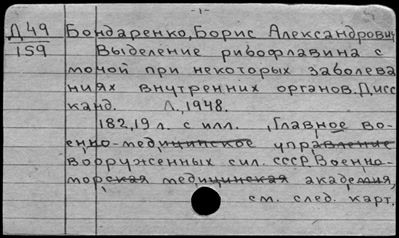 -1-
Д49 Бондаренко, Борис Александрович
159 Выделение рибофлавина с
мочой при некоторых заболева
ниях внутренних органов. Дисс
канд. Л., 1948.
182,19 л. с илл. , Главное во-
енно-медицинское управление
вооруженных сил СССР. Военно-
морская медицинская академия,
см. след. карт.